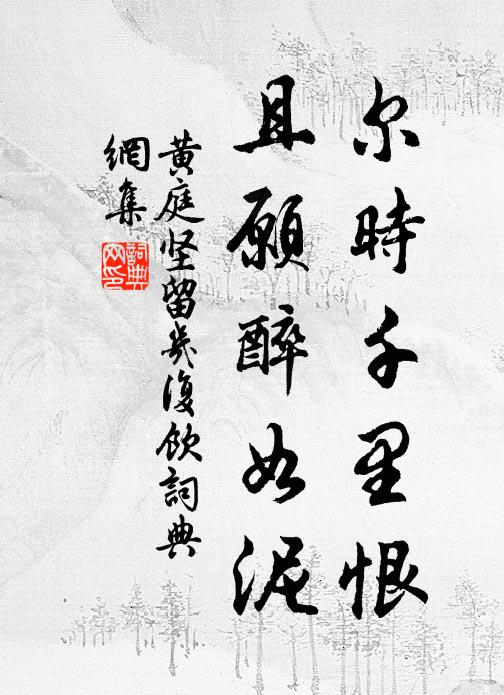 尔時千里恨
且願醉如泥
黄庭坚留几復飲詞典
網集
詞典網印